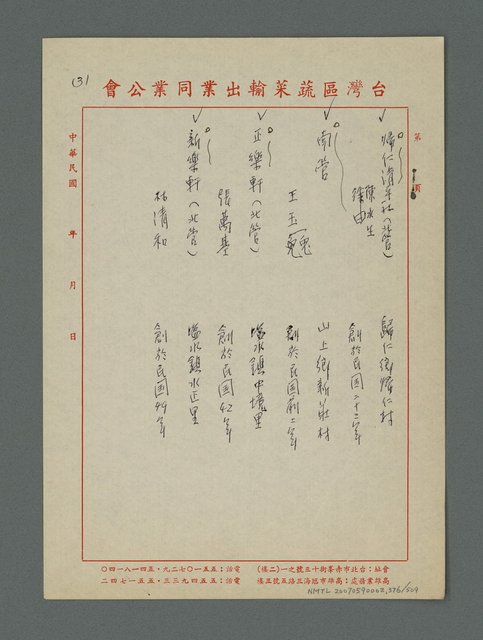 (3)
台灣區蔬菜輸出業同業公會
第 頁
歸仁清平社(北管) 歸仁鄉歸仁村
陳水生
徐由 創於民国二十二年
南管 山上鄉新莊村
王玉冕 創於民国前二年
正樂軒(北管) 塩水鎮中境里
張萬基 創於民国42年
新樂軒(北管) 塩水鎮水正里
林清和 創於民国49年
中華民國 年 月 日
會社:台北市赤峯街十三號之一(二樓) 電話:五五一〇七二九・五四一八一四〇
高雄業務處:高雄市冠海三路五號五樓 電話:五五四九三三・五五一七四二
NMTL 20070590002,376/509